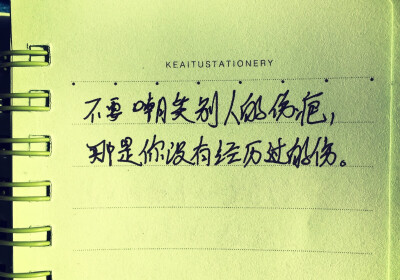 KEAITUSTATIONERY
不要嘲笑别人的伤疤，
那是你没有经历过的伤。